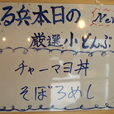 る兵本日の
厳選小どんぶ
チャーマヨ丼
そぼろめし